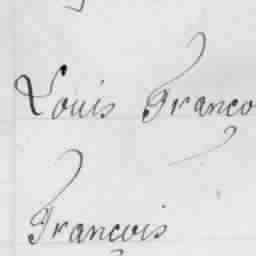 Louis Franco
François